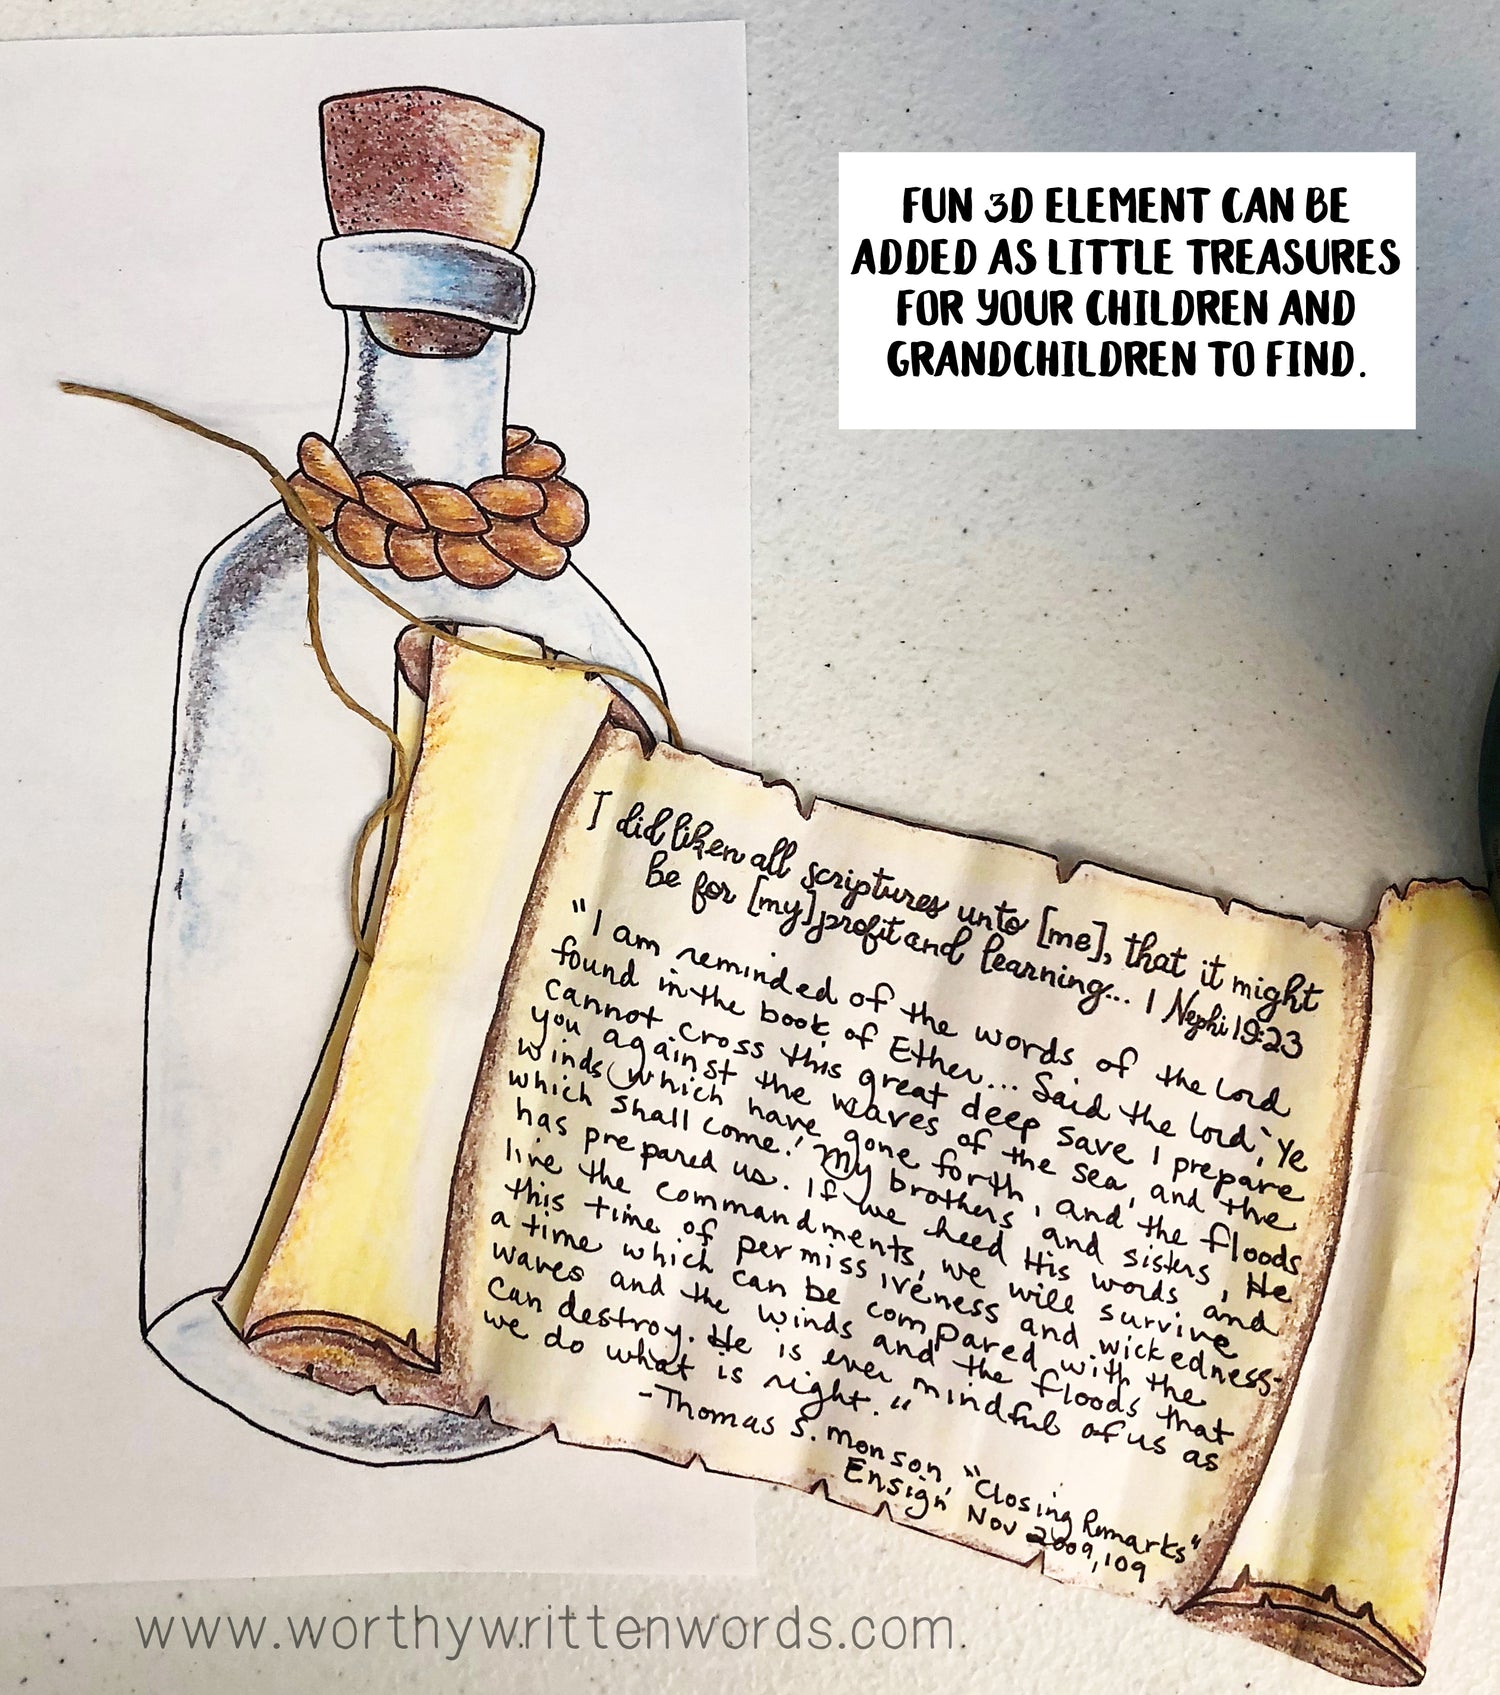 FUN 3D ELEMENT CAN BE
ADDED AS LITTLE TREASURES
FOR YOUR CHILDREN AND
GRANDCHILDREN TO FIND.
I did liken all scriptures unto [me], that it might
be for [my] profit and learning... 1 Nephi 19:23
"I am reminded of the words of the Lord
found in the book of Ether... Said the Lord, 'Ye
cannot cross this great deep save I prepare
you against the waves of the sea, and the
winds which have gone forth, and the floods
which shall come.' My brothers and sisters, He
has prepared us. If we heed His words and
live the commandments, we will survive
this time of permissiveness and wickedness-
a time which can be compared with the
waves and the winds and the floods that
can destroy. He is ever mindful of us as
we do what is right."
-Thomas S. Monson, "Closing Remarks"
Ensign Nov 2009, 109
www.worthywrittenwords.com.